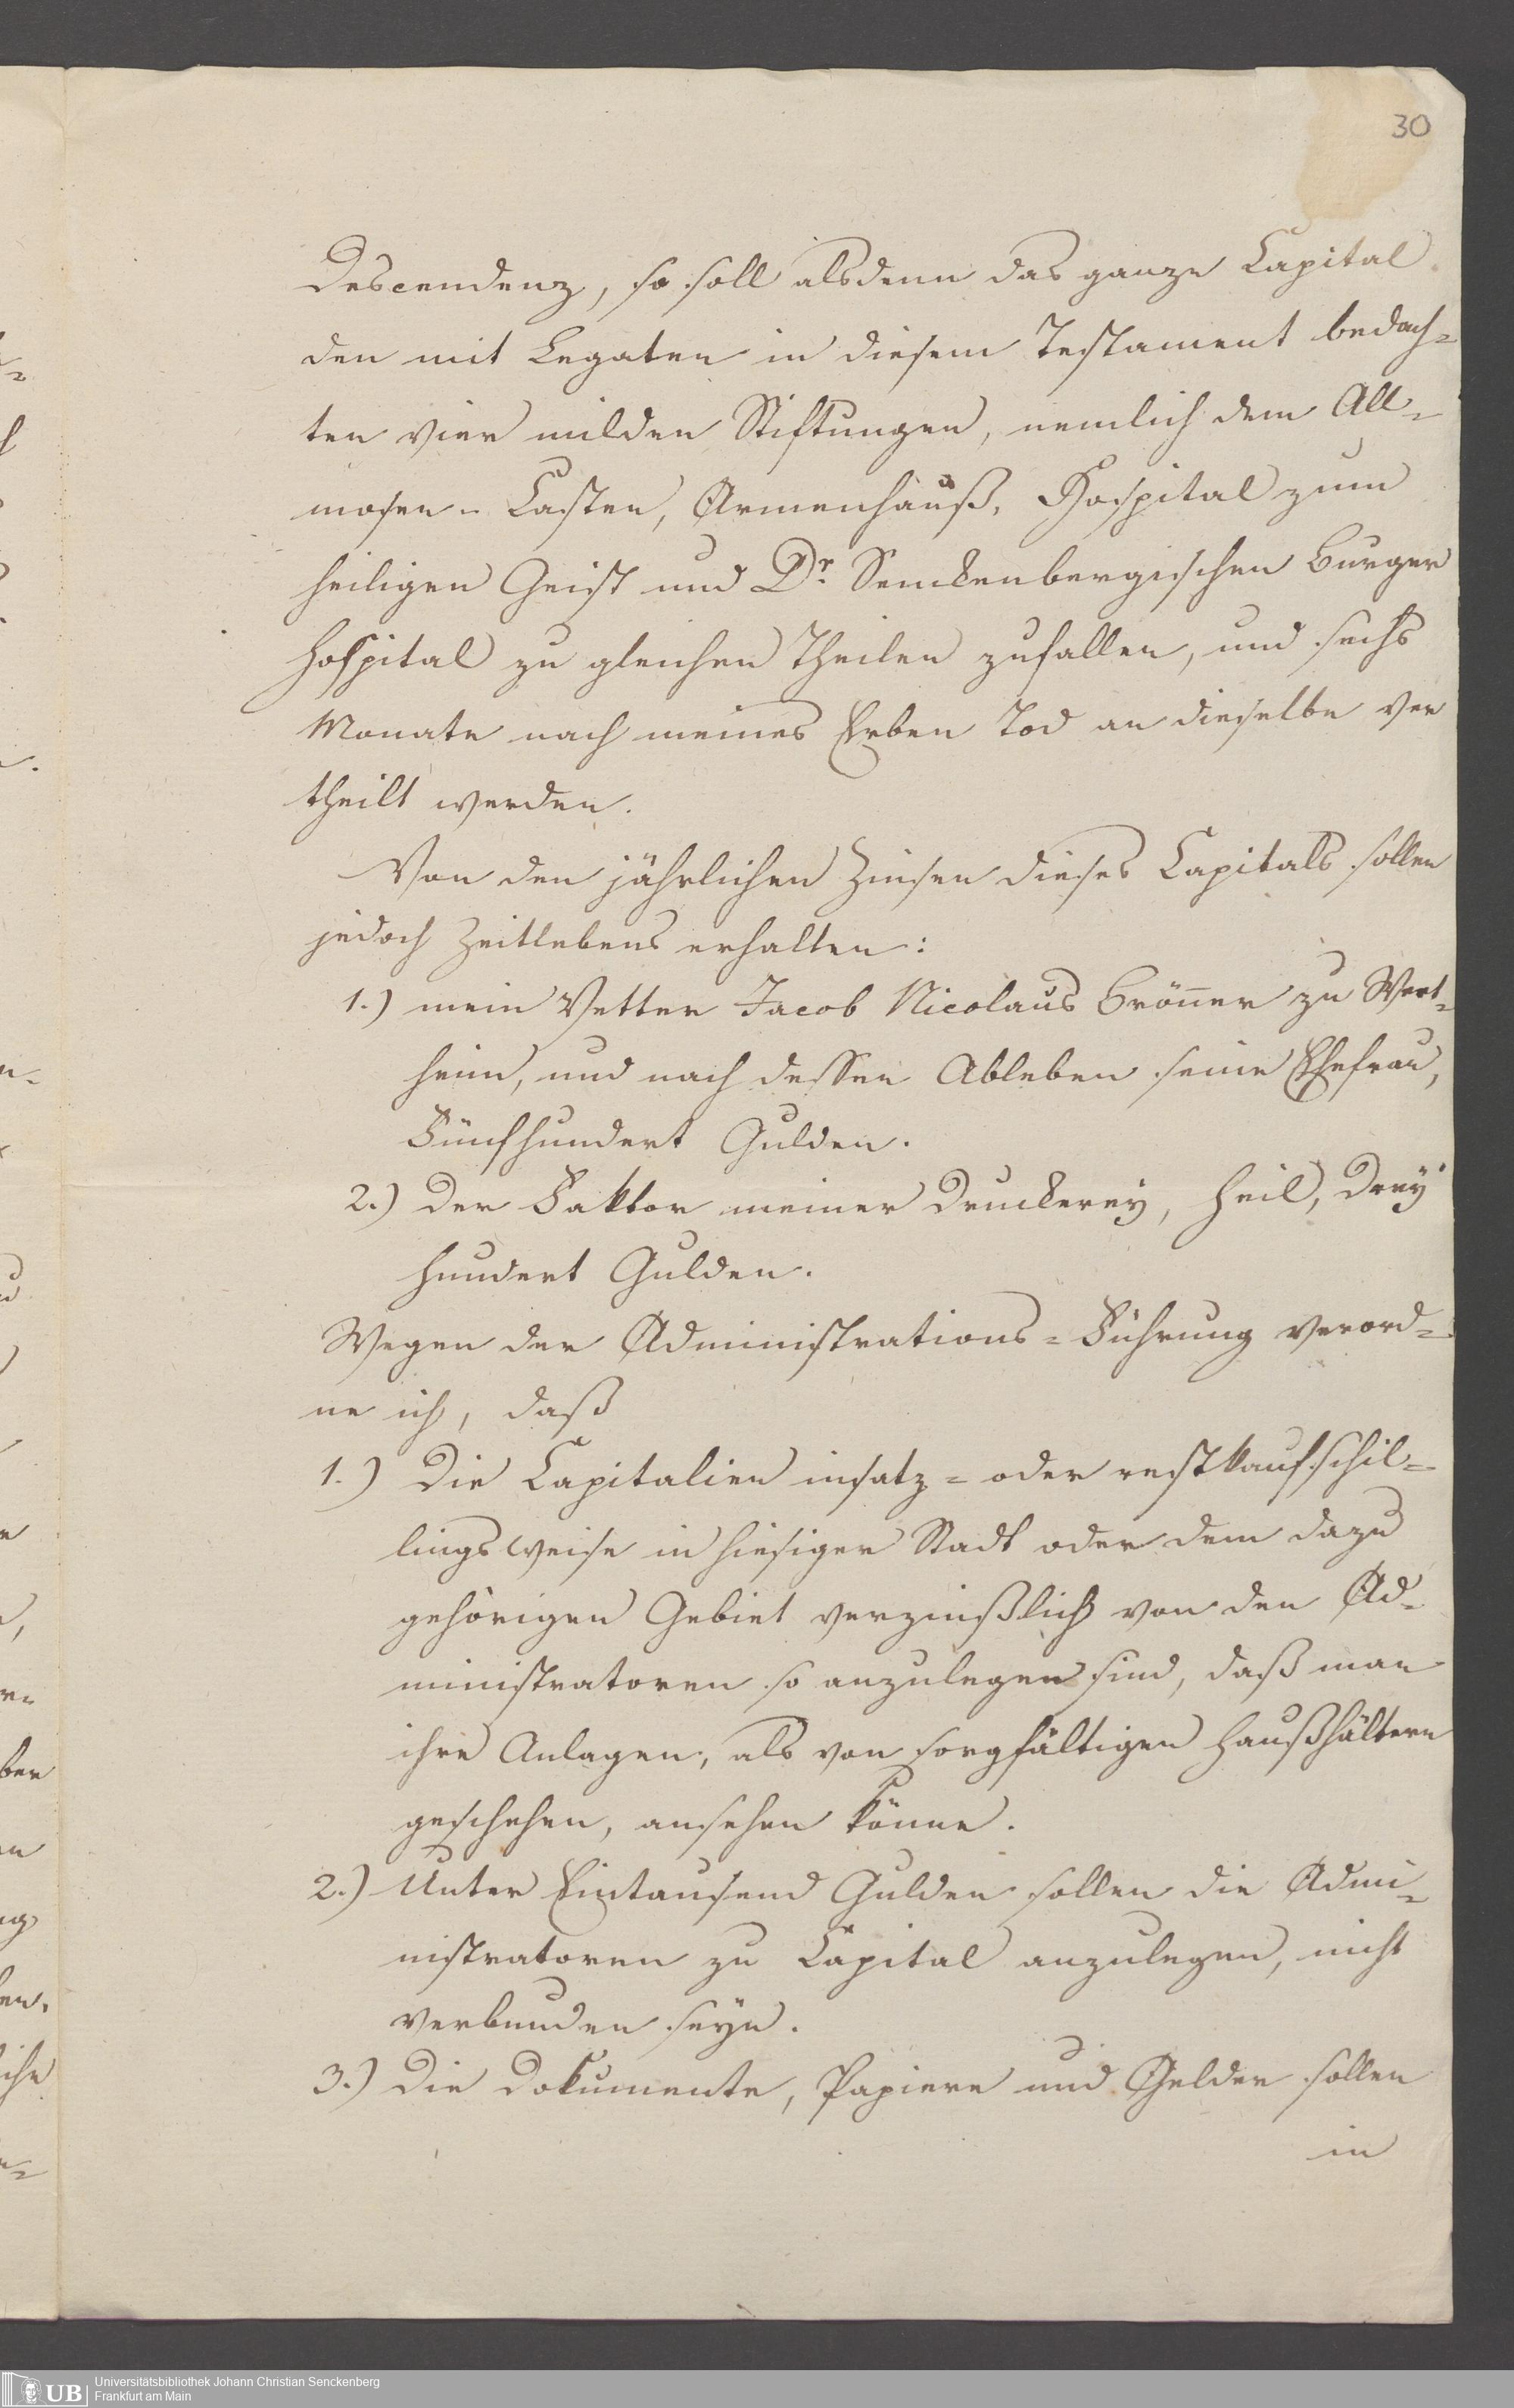 30
Descendenz, so soll alsdenn das ganze Capital
den mit Legaten in diesem Testament bedach-
ten vier milden Stiftungen, nemlich dem All-
mosen-Casten, Armenhauß, Hospital zum
heiligen Geist und Dr. Senckenbergischen Burger
Hospital zu gleichen Theilen zufallen, und sechs
Monate nach meines Erben Tod an dieselbe ver
theilt werden.
Von den jährlichen Zinsen dieses Capitals sollen
jedoch Zeitlebens erhalten:
1.) mein Vetter Jacob Nicolaus Brönner zu Wert-
heim, und nach dessen Ableben seine Ehefrau,
Fünfhundert Gulden.
2.) Der Faktor meiner Druckerey, Heil, Drey
hundert Gulden.
Wegen der Administrations-Führung verord-
ne ich, daß
1.) Die Capitalien insatz- oder restkaufschil-
lingsweise in hiesiger Stadt oder dem dazu
gehörigen Gebiet verzinßlich von den Ad-
ministratoren so anzulegen sind, daß man
ihre Anlagen, als von sorgfältigen Haußhältern
geschehen, ansehen könne.
2.) Unter Eintausend Gulden sollen die Admi-
nistratoren zu Capital anzulegen, nicht
verbunden seyn.
3.) Die Dokumente, Papiere und Gelder sollen
in
UB
Universitätsbibliothek Johann Christian Senckenberg
Frankfurt am Main